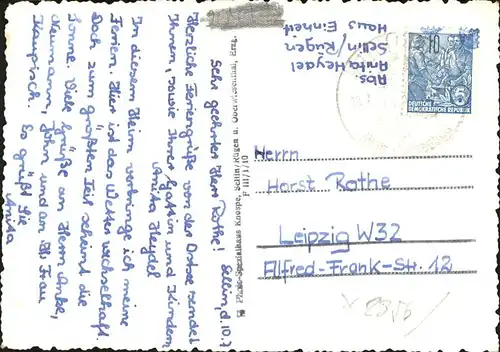 Sellin, d. 10.7.
Sehr geehrter Herr Rothe!
Herzliche Feriengrüße von der Ostsee sendet
Ihnen, sowie Ihrer Gattin und Kindern
Anita Heydel
In diesem Heim verbringe ich meine
Ferien. Hier ist das Wetter wechselhaft.
Doch zum größten Teil scheint die
Sonne. Viele Grüße an Herrn Anke,
Neumann, John und an Fr. Frau
Kaupisch.
So grüßt Sie
Anita
Photo-Spezialhaus Knospe, Sellin/Rügen u. Oberwiesenthal, Erzg.
F III/1/10
Abs.
Anita Heydel
Sellin/Rügen
Haus Einheit
10
DEUTSCHE
DEMOKRATISCHE REPUBLIK
Herrn
Horst Rothe
Leipzig W32
Alfred-Frank-Str. 12